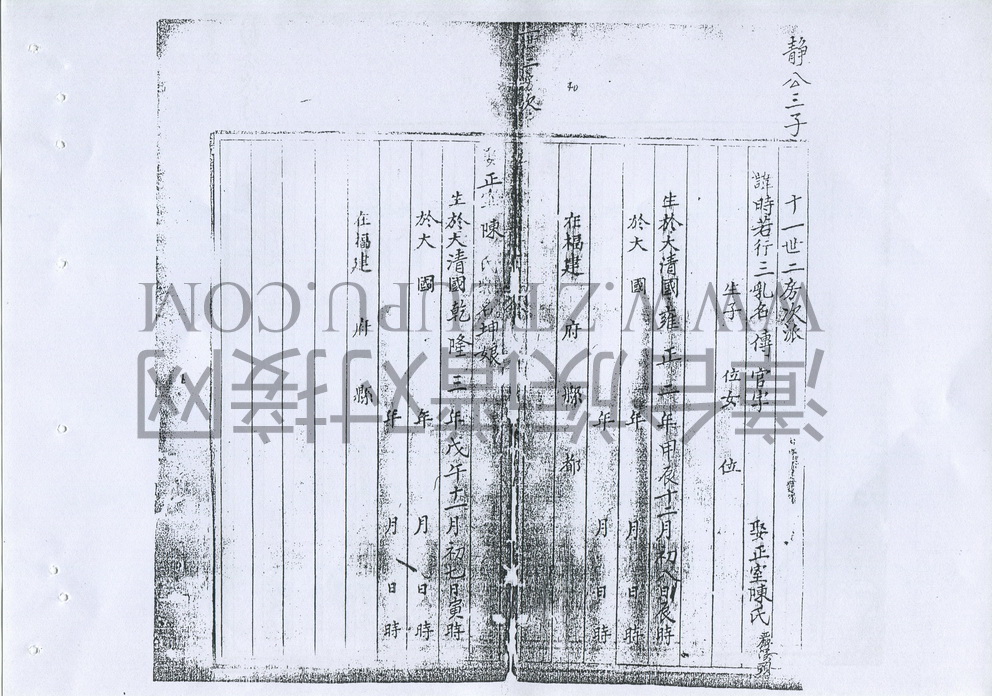 靜公三子
十一世二房次派
諱時若行三乳名傳官字 娶正室陳氏
生子 位女 位
生於大清國雍正二年甲辰十二月初八日辰時
於大 國 年 月 日 時
年 月 日 時
在福建 府 縣 都
娶正室陳氏 名坤娘
生於大清國乾隆三年戊午十一月初七日寅時
於大 國 年 月 日 時
年 月 日 時
在福建 府 縣
漳台族谱对接网
WWW.ZTZUPU.COM